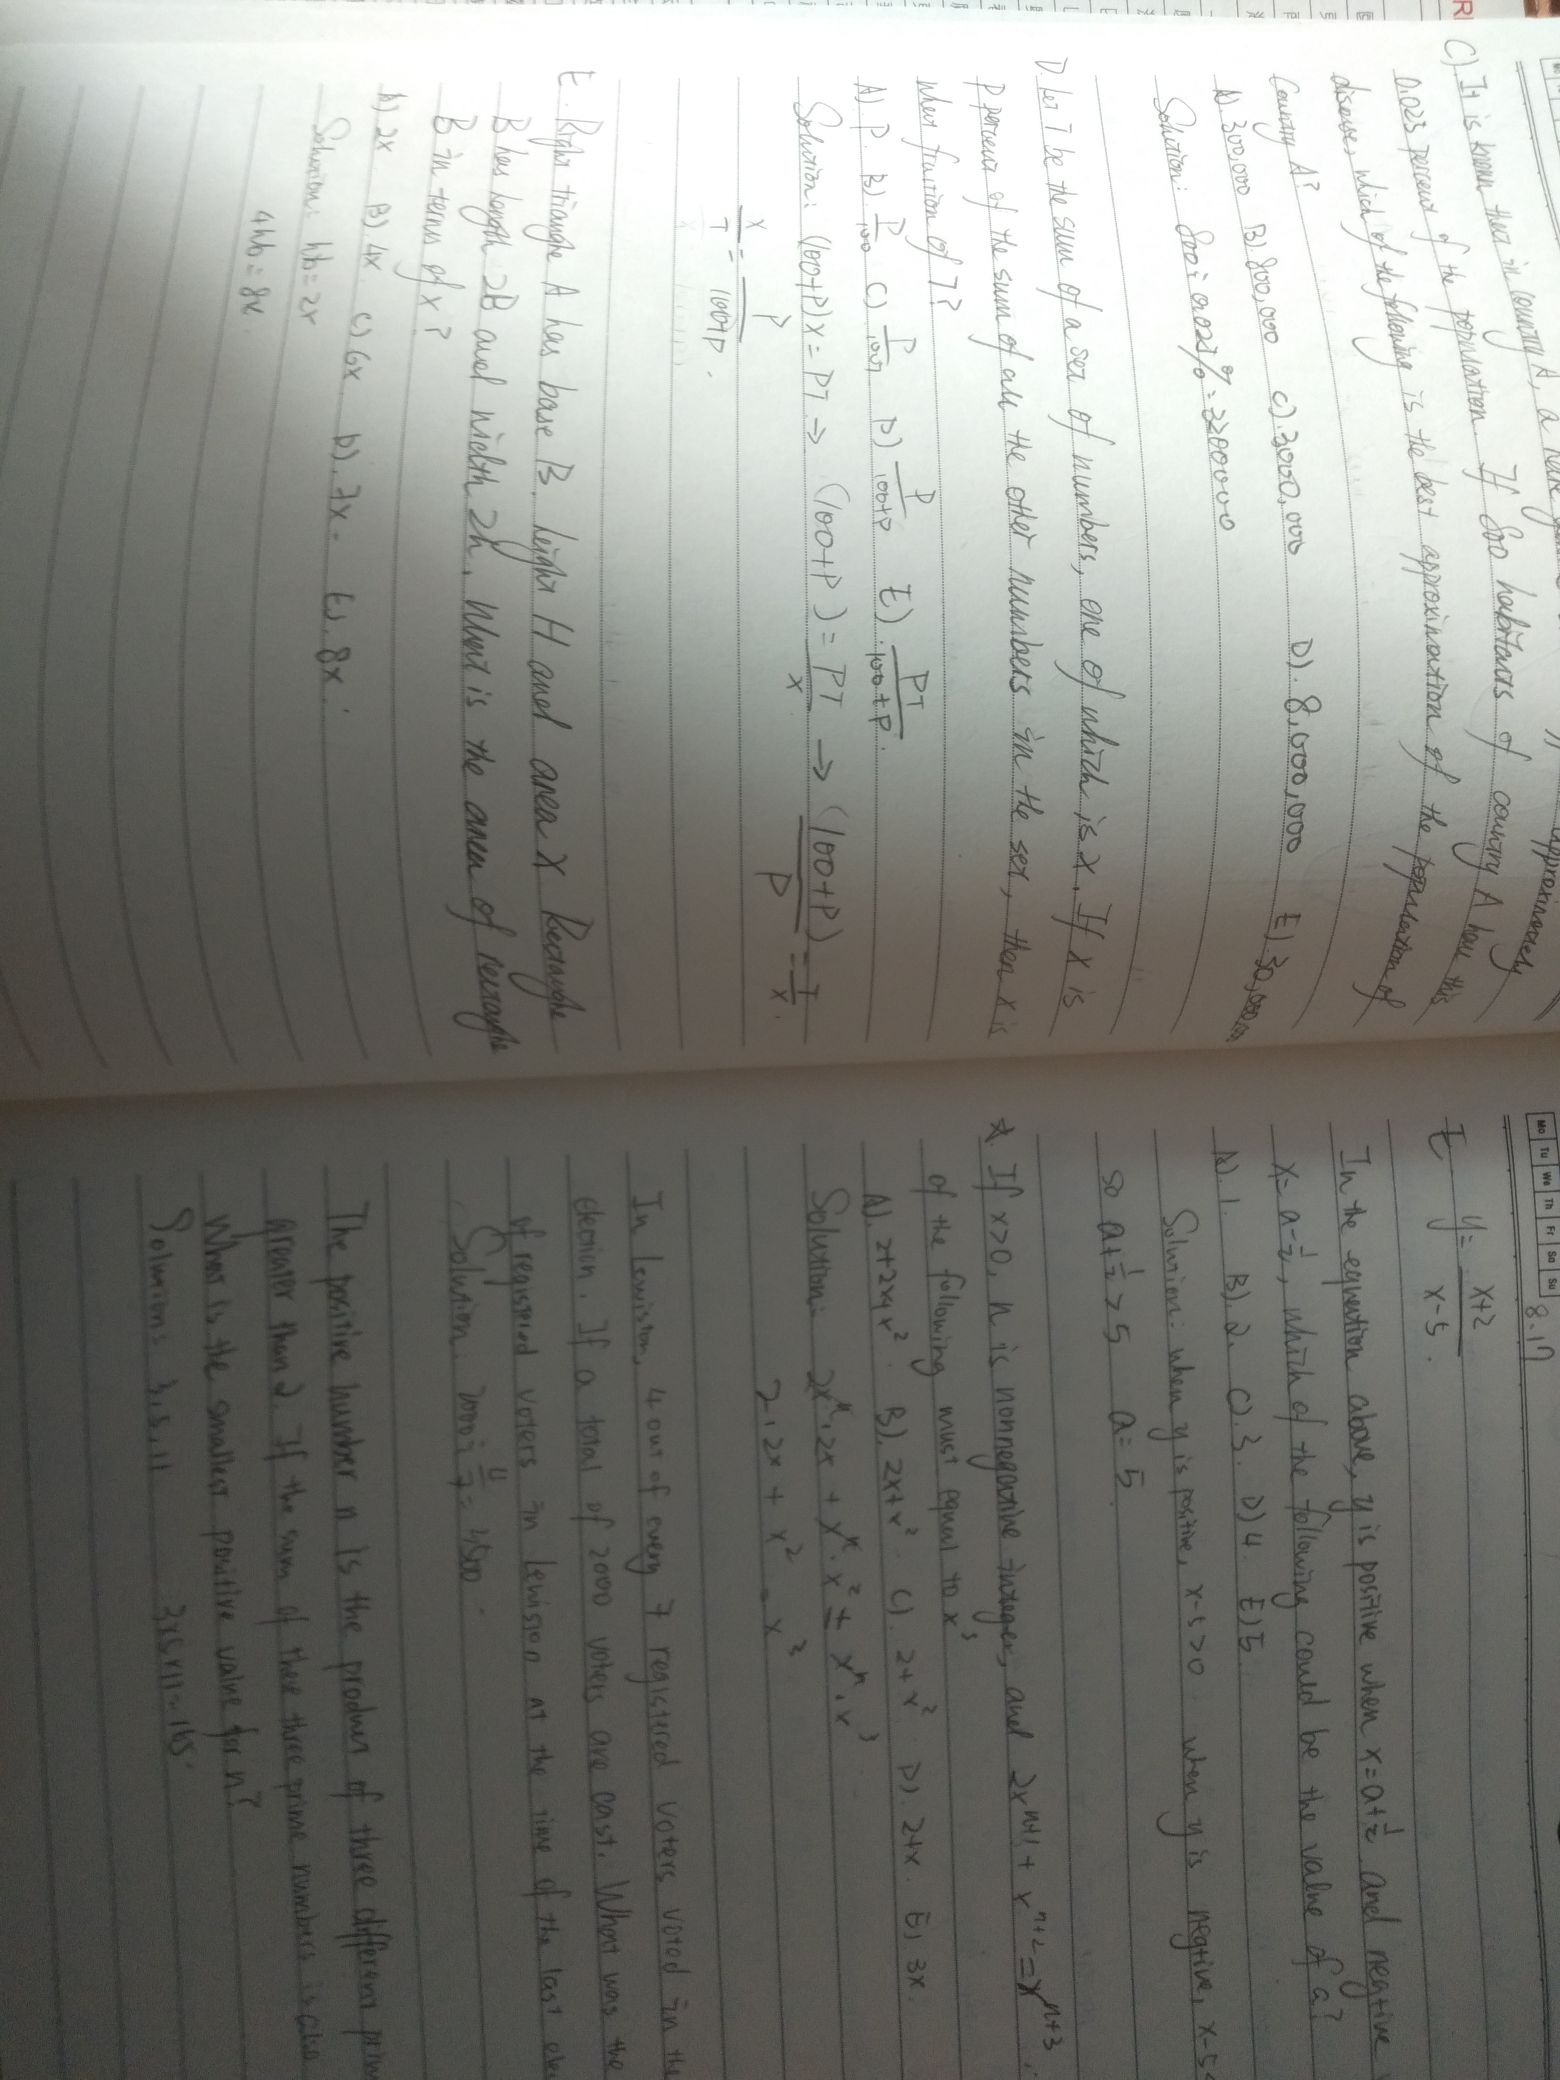 C). It is known that in country A, a
approximately
0.023 percent of the population. If 800 habitants of country A have this
disease, which of the following is the best approximation of the population of
Country A?
A) 300,000 B). 800,000 C). 3000,000 D). 8,000,000 E) 30,000,000
Solution: 800 ÷ 0.023% = 3200000
D. Let T be the sum of a set of numbers, one of which is x. If x is
P percent of the sum of all the other numbers in the set, then x is
what fration of T?
A) P. B). P/100 C) D) P/100+P E). PT/100+P.
Solution: (100+P)x = PT → (100+P) = PT/x → (100+P)/P = T/x.
x/T = P/100+P.
E. Right triangle A has base B, height H and area X Rectangle
B has length 2B and width 2h. What is the area of rectangle
B in terms of x?
A). 2x B). 4x. C) 6x. D). 7x. E). 8x.
Solution: hb = 2x
4hb = 8x.
Mo Tu We Th Fr Sa Su 8.17
E y = x+2/x-5.
In the equation above, y is positive when x = a+1/2 and negative
x = a-1/2, which of the following could be the value of a?
A). 1. B). 2. C). 3. D) 4. E) 5.
Solution: when y is positive, x-5>0 when y is negtive, x-5<
so a+1/2 > 5 a = 5.
If x>0, n is nonnegative integer, and 2xⁿ⁺¹ + xⁿ⁺² = xⁿ⁺³.
of the following must equal to x³
A). 2+2x+x². B). 2x+x². C). 2+x². D). 2+x. E) 3x.
Solution: 2xⁿ·2x + xⁿ·x² = xⁿ·x³
2·2x + x² = x³
In Lewiston, 4 out of every 7 registered voters voted in the
election. If a total of 2000 voters are cast. What was the
of registered voters in Lewiston at the time of the last
Solution: 2000 ÷ 4/7 = 3500.
The positive number n is the product of three different prim
greater than 2. If the sum of these three prime numbers is also
What is the smallest positive value for n?
Solution: 3, 5, 11 3x5x11=165.